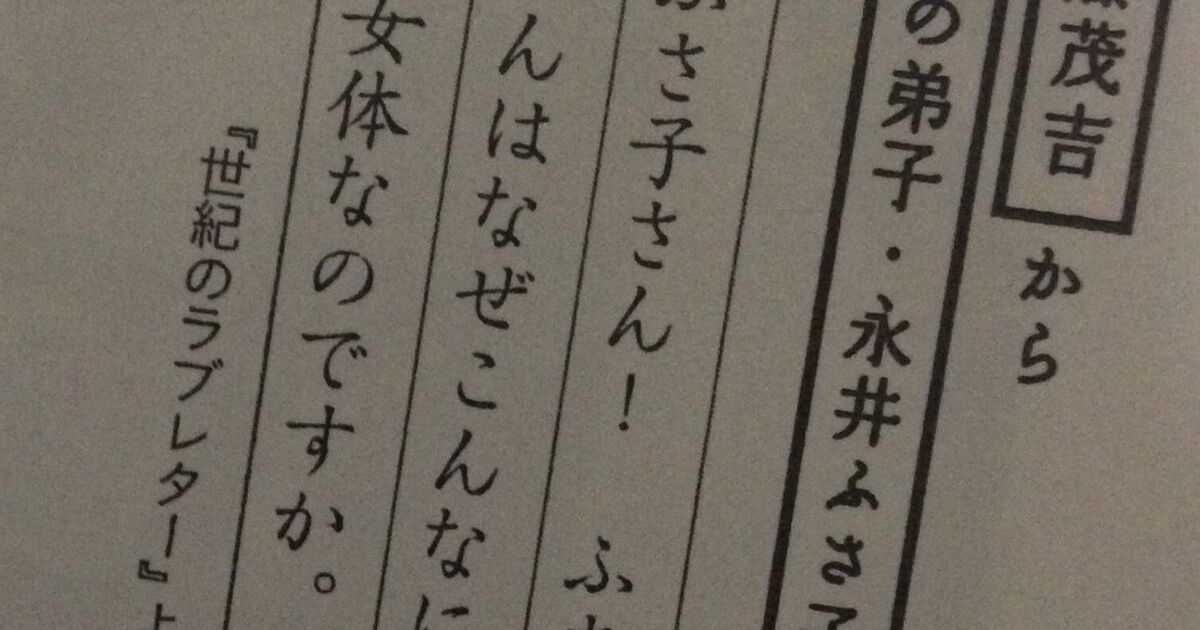 茂吉から
の弟子・永井ふさ子
ふさ子さん！ ふ
んはなぜこんなに
女体なのですか。
『世紀のラブレター』よ